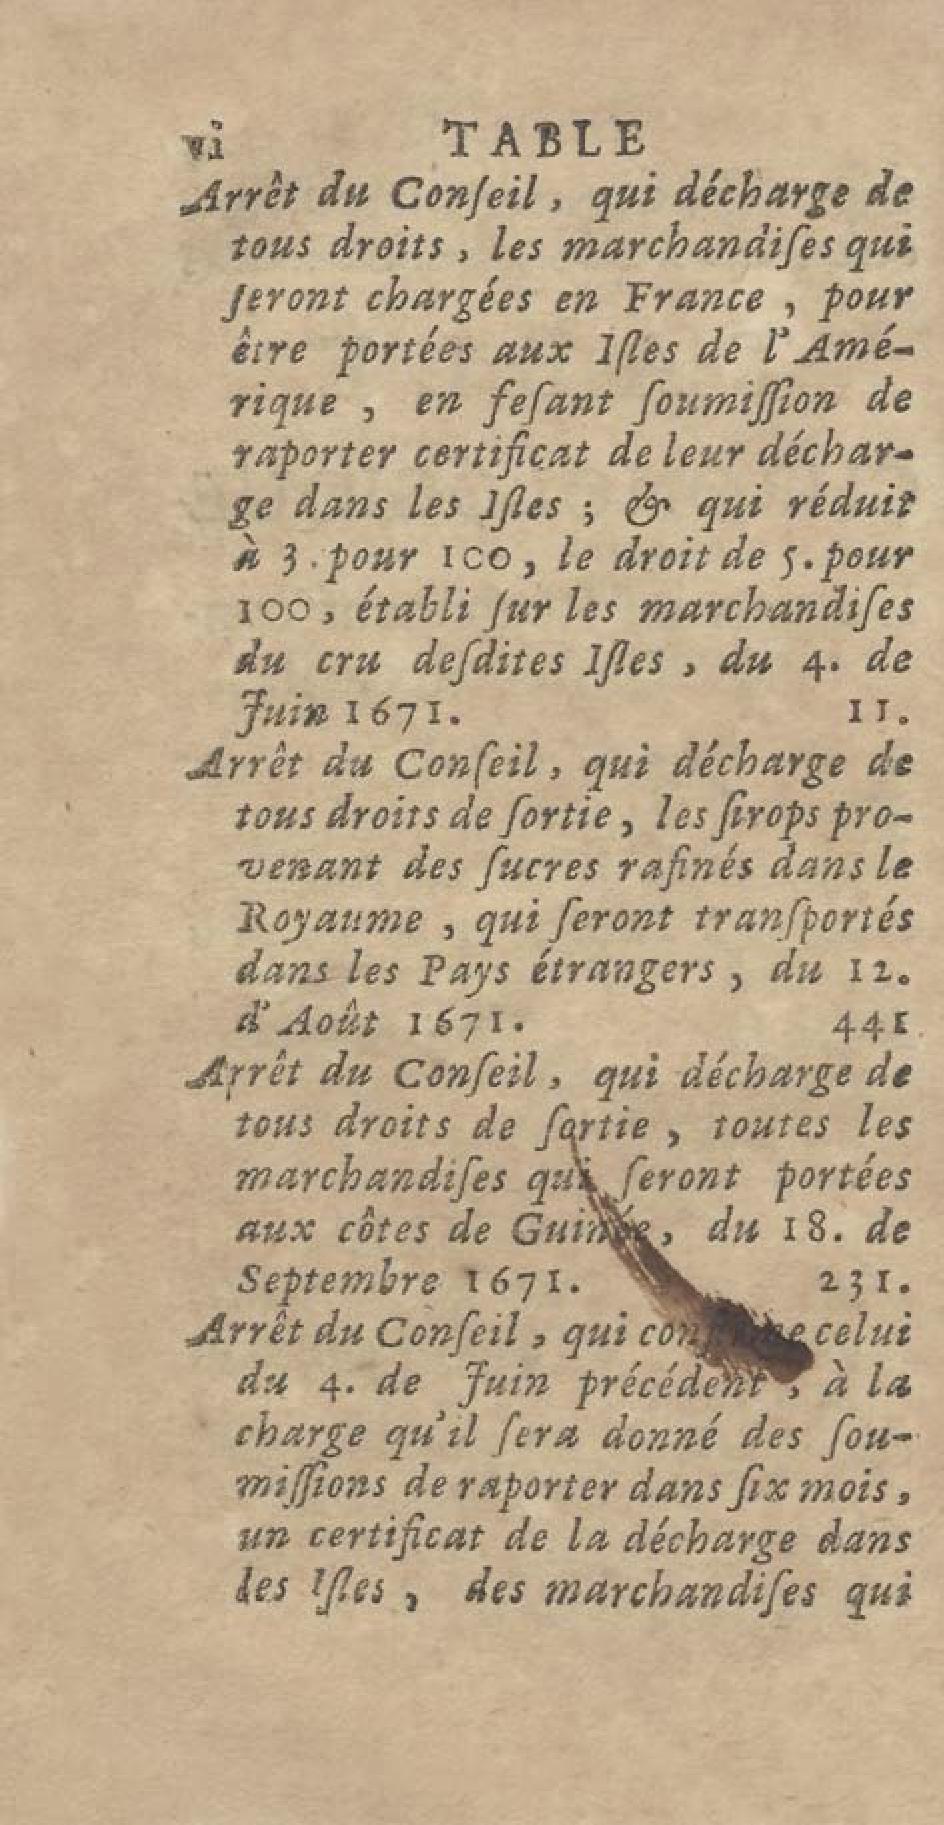 vi TABLE
Arrêt du Conſeil, qui décharge de
tous droits, les marchandiſes qui
ſeront chargées en France, pour
être portées aux Iſles de l'Amé-
rique, en feſant ſoumiſſion de
raporter certificat de leur déchar-
ge dans les Iſles; & qui réduit
à 3. pour 100, le droit de 5. pour
100, établi ſur les marchandiſes
du cru deſdites Iſles, du 4. de
Juin 1671. 11.
Arrêt du Conſeil, qui décharge de
tous droits de ſortie, les ſirops pro-
venant des ſucres rafinés dans le
Royaume, qui ſeront tranſportés
dans les Pays étrangers, du 12.
d'Août 1671. 441
Arrêt du Conſeil, qui décharge de
tous droits de ſortie, toutes les
marchandiſes qui ſeront portées
aux côtes de Guinée, du 18. de
Septembre 1671. 231.
Arrêt du Conſeil, qui confirme celui
du 4. de Juin précédent, à la
charge qu'il ſera donné des ſou-
miſſions de raporter dans ſix mois,
un certificat de la décharge dans
les Iſles, des marchandiſes qui